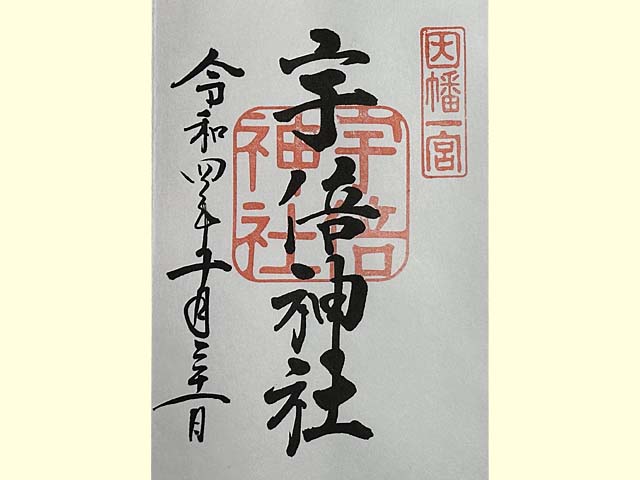 因幡一宮
宇倍神社
宇倍
神社
令和四年十一月二十一日